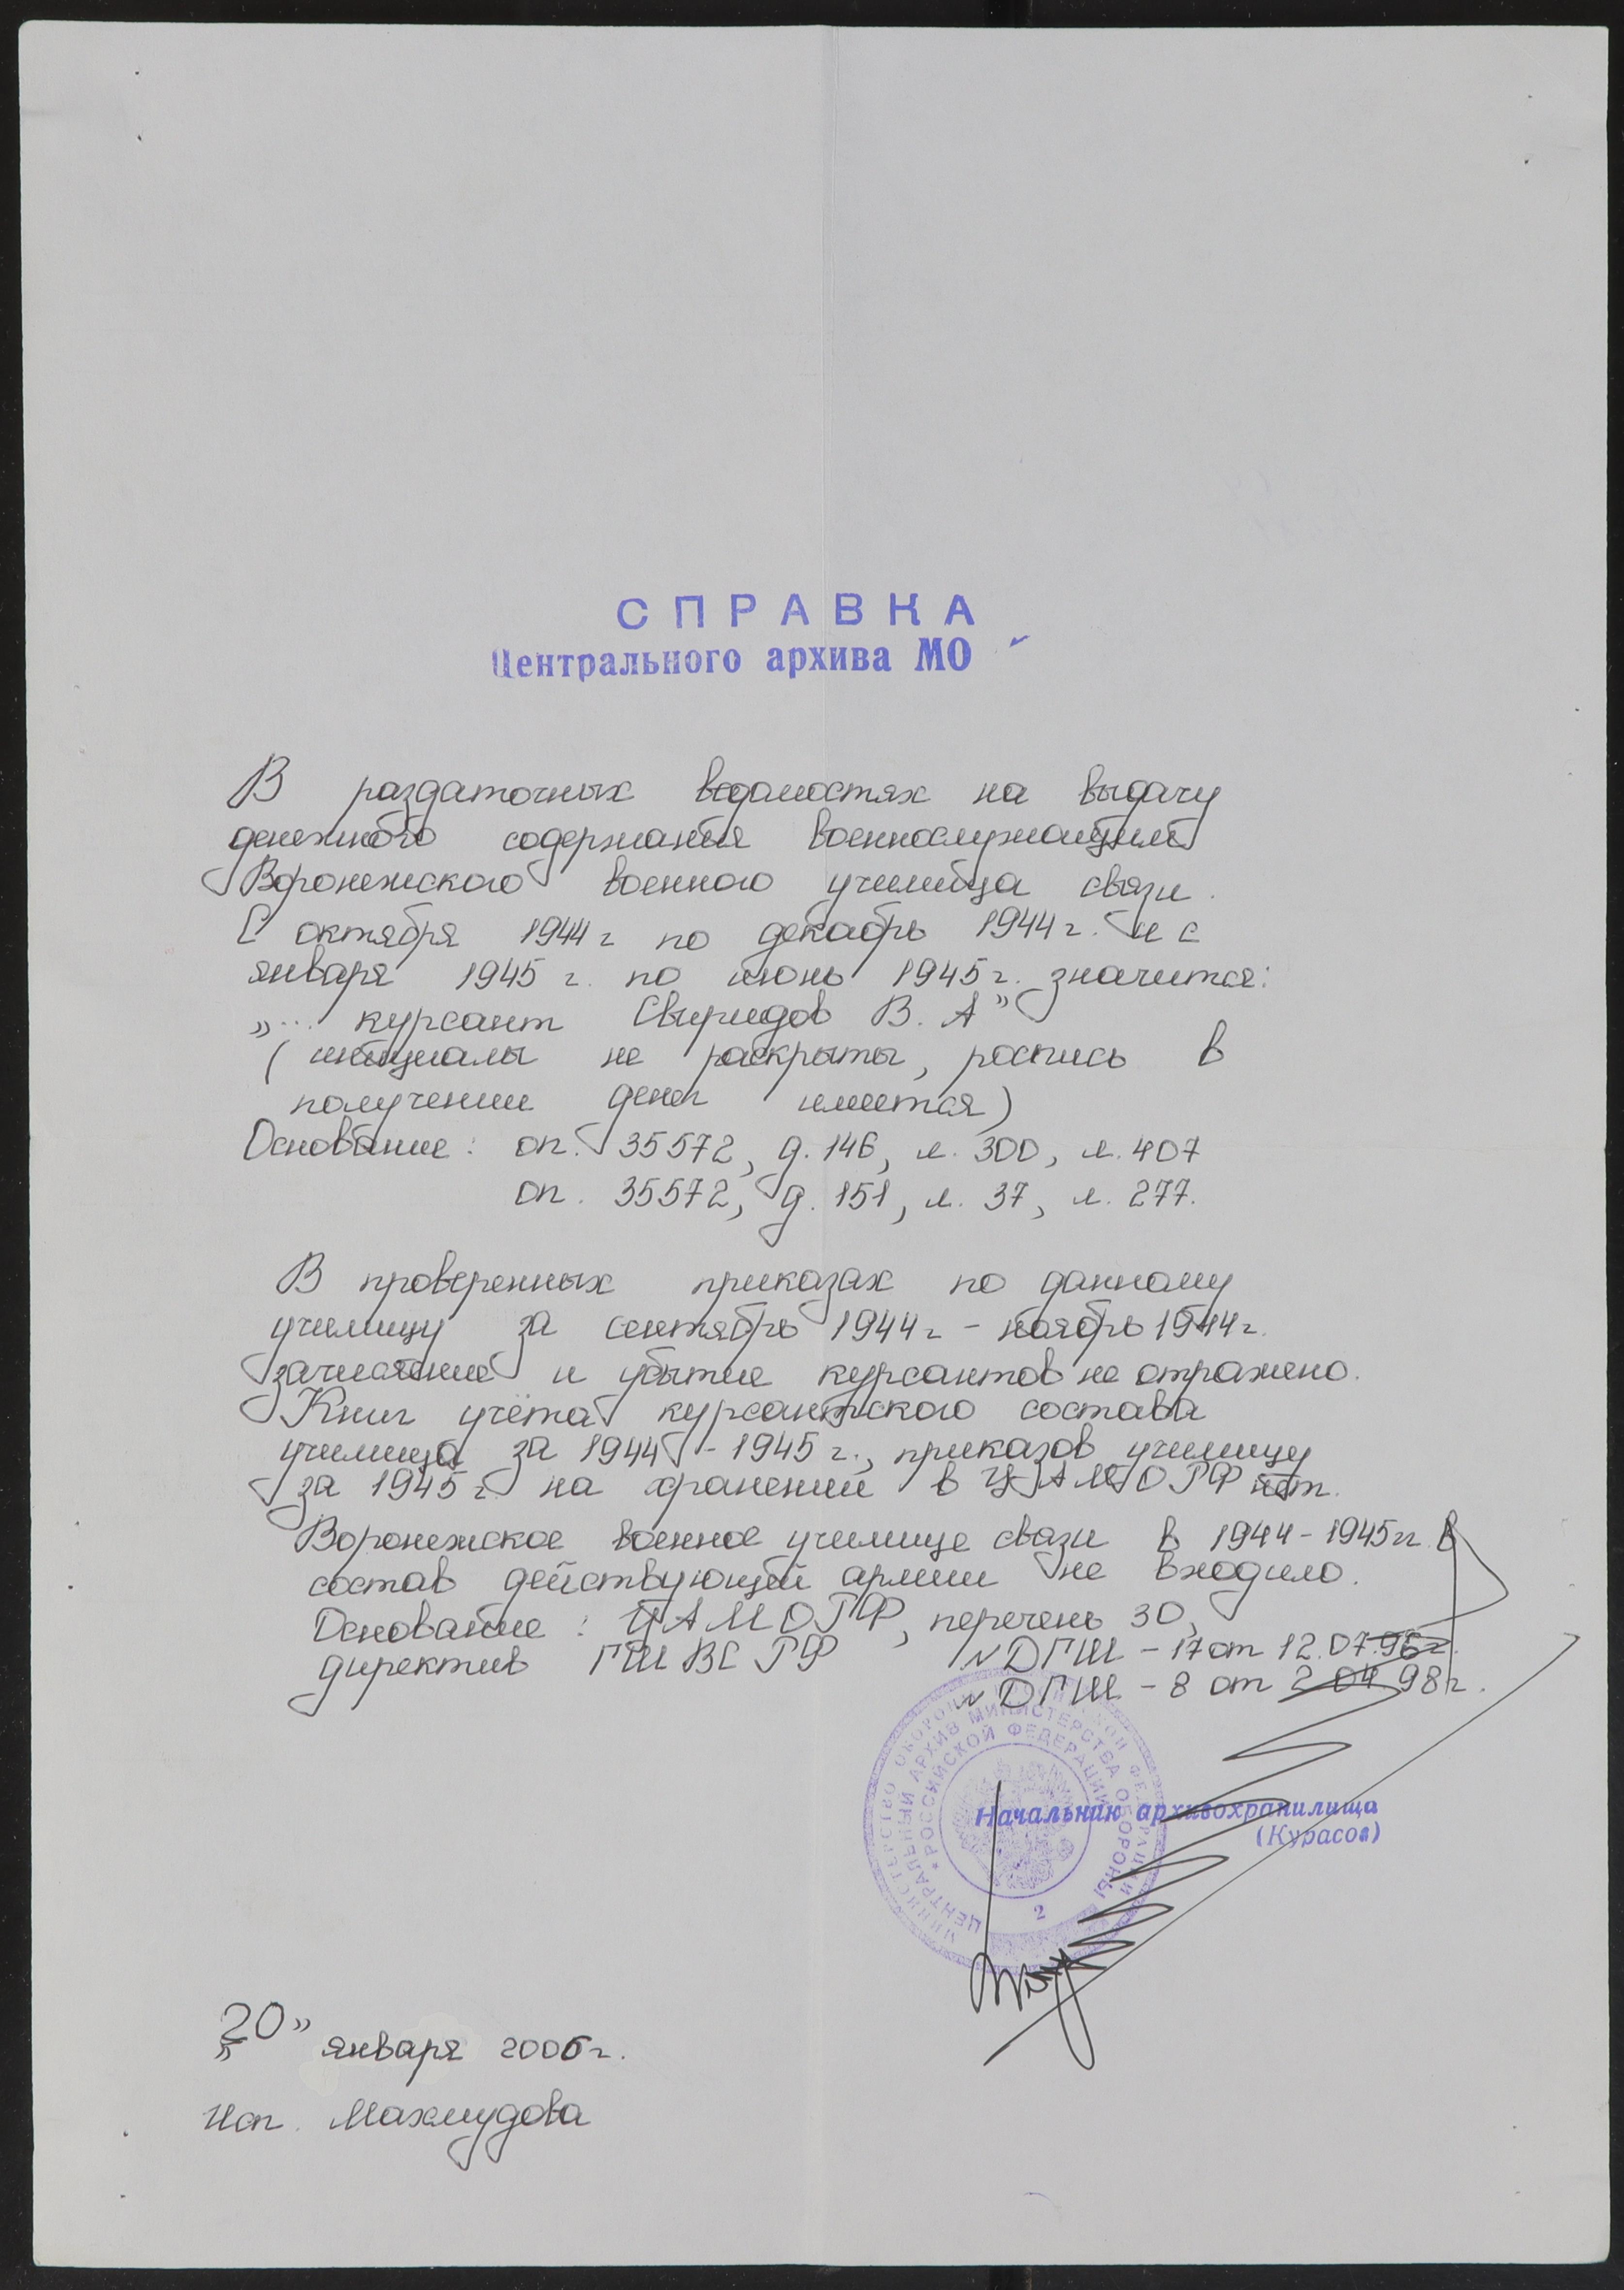 СПРАВКА
Центрального архива МО
В раздаточных ведомостях на выдачу
денежного содержания военнослужащим
Воронежского военного училища связи.
С октября 1944 г по декабрь 1944 г. и с
января 1945 г. по июнь 1945 г. значится:
„... курсант Свиридов В. А”
(инициалы не раскрыты, роспись в
получении денег имеется)
Основание: оп. 35572, д. 146, л. 300, л. 407
оп. 35572, д. 151, л. 37, л. 277.
В проверенных приказах по данному
училищу за сентябрь 1944 г - ноябрь 1944 г.
зачисление и убытие курсантов не отражено.
Книг учёта курсантского состава
училища за 1944 - 1945 г., приказов училищу
за 1945 г на хранении в ЦАМО РФ нет.
Воронежское военное училище связи в 1944-1945 гг. в
состав действующей армии не входило.
Основание: ЦАМО РФ, перечень 30,
директив ГШ ВС РФ N ДГШ - 17 от 12.07.96г.
N ДГШ - 8 от 2 04 98г.
МИНИСТЕРСТВО ОБОРОНЫ РОССИЙСКОЙ ФЕДЕРАЦИИ
ЦЕНТРАЛЬНЫЙ АРХИВ МИНИСТЕРСТВА ОБОРОНЫ
РОССИЙСКОЙ ФЕДЕРАЦИИ
2
Начальник архивохранилища
(Курасов)
„20” января 2006 г.
Исп. Махмудова